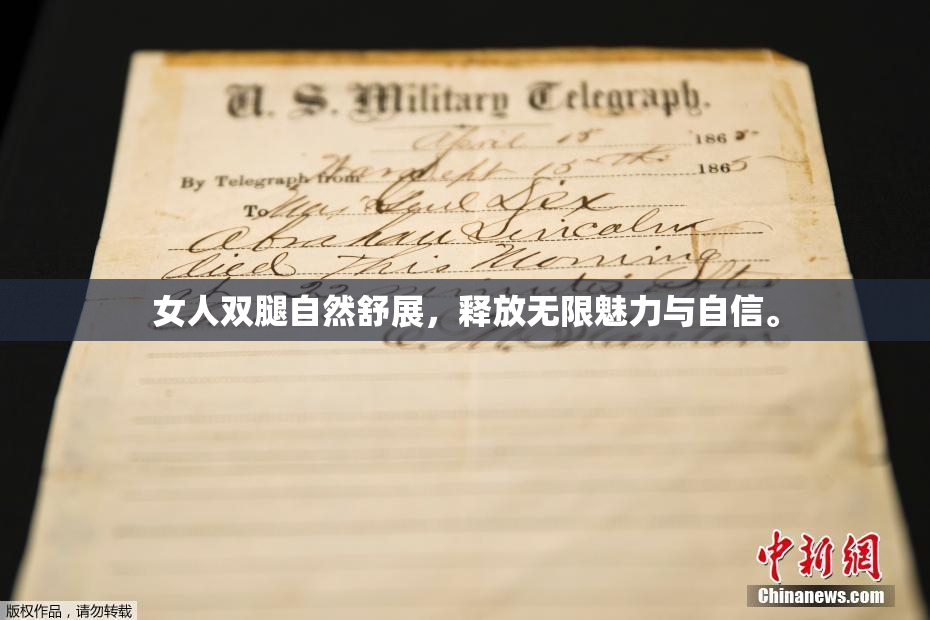 U. S. Military Telegraph.
April 15 1865
By Telegraph from War Dept 15th 1865
To Maj Genl Dix
Abraham Lincoln
died This Morning
at 22 minutes after
女人双腿自然舒展，释放无限魅力与自信。
中新網
Chinanews.com
版权作品，请勿转载